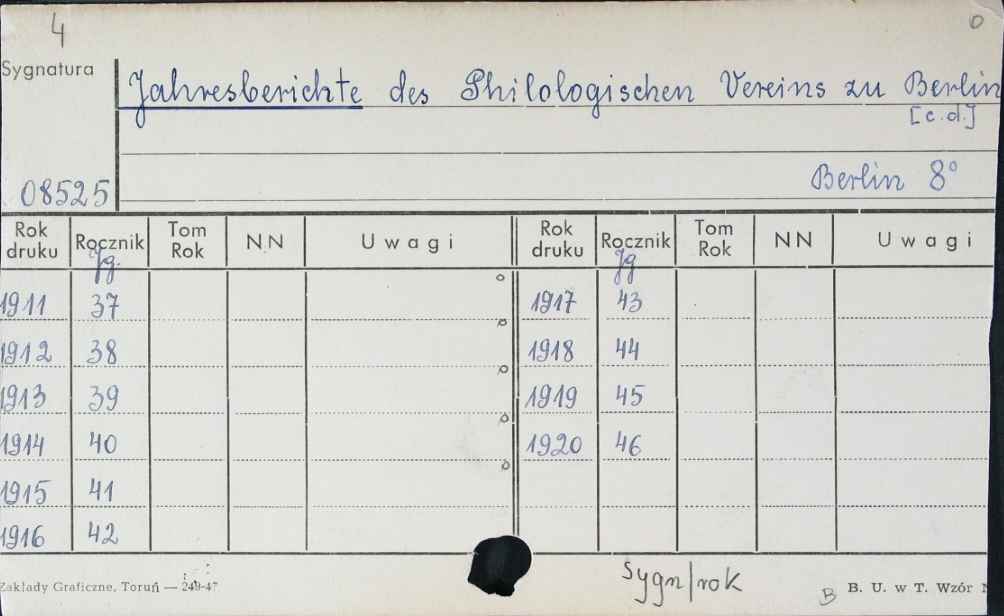 4
0
Sygnatura
Jahresberichte des Philologischen Vereins zu Berlin
[c.d.]
Berlin 8°
08525
Rok druku Rocznik Jg. Tom Rok NN Uwagi Rok druku Rocznik Jg Tom Rok NN Uwagi
1911 37 1917 43
1912 38 1918 44
1913 39 1919 45
1914 40 1920 46
1915 41
1916 42
Zakłady Graficzne, Toruń — 249-47
Sygn/rok
B
B. U. w T. Wzór